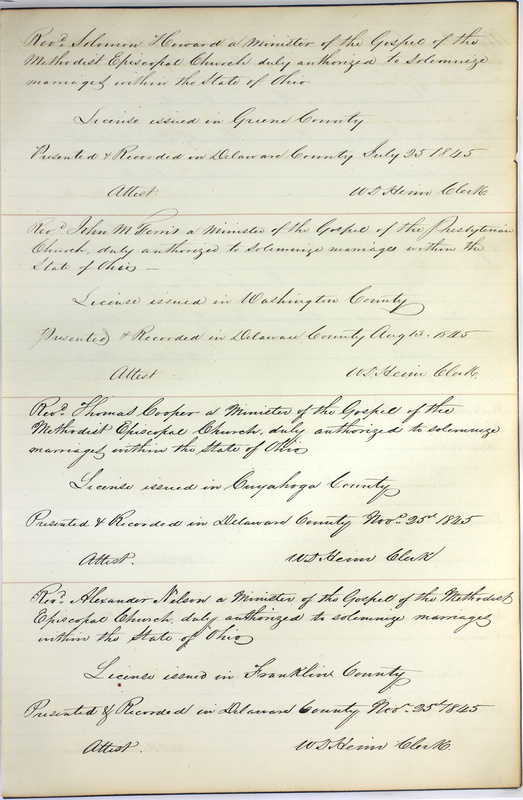 Revd. Solomon Howard a Minister of the Gospel of the
Methodist Episcopal Church duly authorized to solemnize
marriages within the State of Ohio
License issued in Greene County
Presented & Recorded in Delaware County July 25 1845
Attest. W D Heim Clerk
Revd. John M Ferris a Minister of the Gospel of the Presbyterian
Church, duly authorized to solemnize marriages within the
State of Ohio —
License issued in Washington County
Presented & Recorded in Delaware County Aug 13. 1845
Attest W D Heim Clerk.
Revd. Thomas Cooper a Minister of the Gospel of the
Methodist Episcopal Church, duly authorized to solemnize
marriages within the State of Ohio
License issued in Cuyahoga County
Presented & Recorded in Delaware County Novr. 25d 1845
Attest. W D Heim Clerk
Revd. Alexander Nelson a Minister of the Gospel of the Methodist
Episcopal Church, duly authorized to solemnize marriages
within the State of Ohio
License issued in Franklin County
Presented & Recorded in Delaware County Novr. 25d 1845
Attest. W D Heim Clerk.